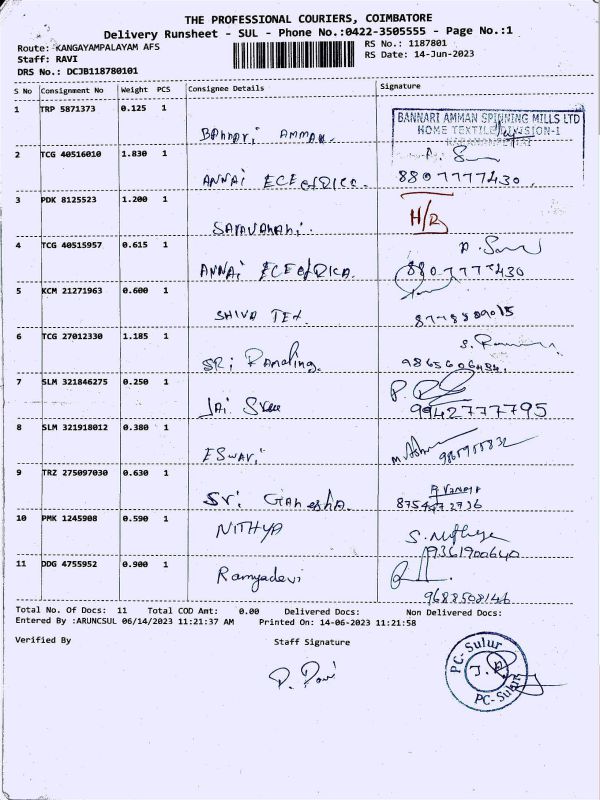 THE PROFESSIONAL COURIERS, COIMBATORE
Delivery Runsheet - SUL - Phone No.:0422-3505555 - Page No.:1
Route: KANGAYAMPALAYAM AFS RS No.: 1187801
Staff: RAVI RS Date: 14-Jun-2023
DRS No.: DCJB118780101
S No Consignment No Weight PCS Consignee Details Signature
1 TRP 5871373 0.125 1
BANNARI AMMAN SPINNING MILLS LTD
HOME TEXTILE DIVISION-1
BANNARI AMMAN.
2 TCG 40516010 1.830 1
ANNAI ECEofRICA. 8807777430.
3 PDK 8125523 1.200 1 H/R
SARAVANAN.
4 TCG 40515957 0.615 1
ANNAI ECEofRICA. 8807777430
5 KCM 21271963 0.600 1
SHIVA TEX.
6 TCG 27012330 1.185 1
SRi Ramaling.
7 SLM 321846275 0.250 1
JAi Sree 9942777795
8 SLM 321918012 0.380 1
ESWARi
9 TRZ 275097030 0.630 1
SRi GANESHA.
10 PMK 1245908 0.590 1
NITHYA S. Nithya
9361900640
11 DDG 4755952 0.900 1
Ramyadevi
9688508146
Total No. Of Docs: 11 Total COD Amt: 0.00 Delivered Docs: Non Delivered Docs:
Entered By :ARUNCSUL 06/14/2023 11:21:37 AM Printed On: 14-06-2023 11:21:58
Verified By Staff Signature
P. Ravi
PC-Sulur
PC-Sulur